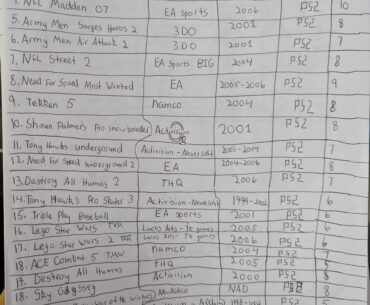 4. NFL Madden 07 EA Sports 2006 PS2 10
5. Army Men Sarges Heros 2 3DO 2001 PS2 8
6. Army Men Air Attack 2 3DO 2001 PS2 7
7. NFL Street 2 EA Sports BIG 2004 PS2 8
8. Need For Speed Most Wanted EA 2005-2006 PS2 9
9. Tekken 5 Namco 2004 PS2 8
10. Shaun Palmer's Pro Snowboarder Activision 2001 PS2 8
11. Tony Hawks Underground Activision - Neversoft 2003-2004 PS2 7
12. Need For Speed Underground 2 EA 2004-2006 PS2 8
13. Destroy All Humans 2 THQ 2006 PS2 7
14. Tony Hawk's Pro Skater 3 Activision - Neversoft 1999-2002 PS2 6
15. Triple Play Baseball EA Sports 2001 PS2 6
16. Lego Star Wars Lucas Arts - 2005 PS2 6
17. Lego Star Wars 2 Lucas Arts - 2006 PS2 6
18. ACE Combat 5 Namco 2004 PS2 7
19. Destroy All Humans THQ 2005 PS2 7
18. Sky Odyssey Activision 2000 PS2 8
NAD 8